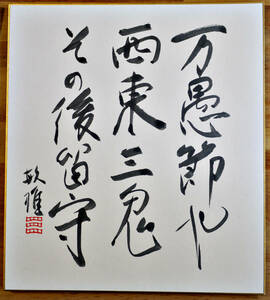 万愚節や
西東三鬼
その後留守
敏雅